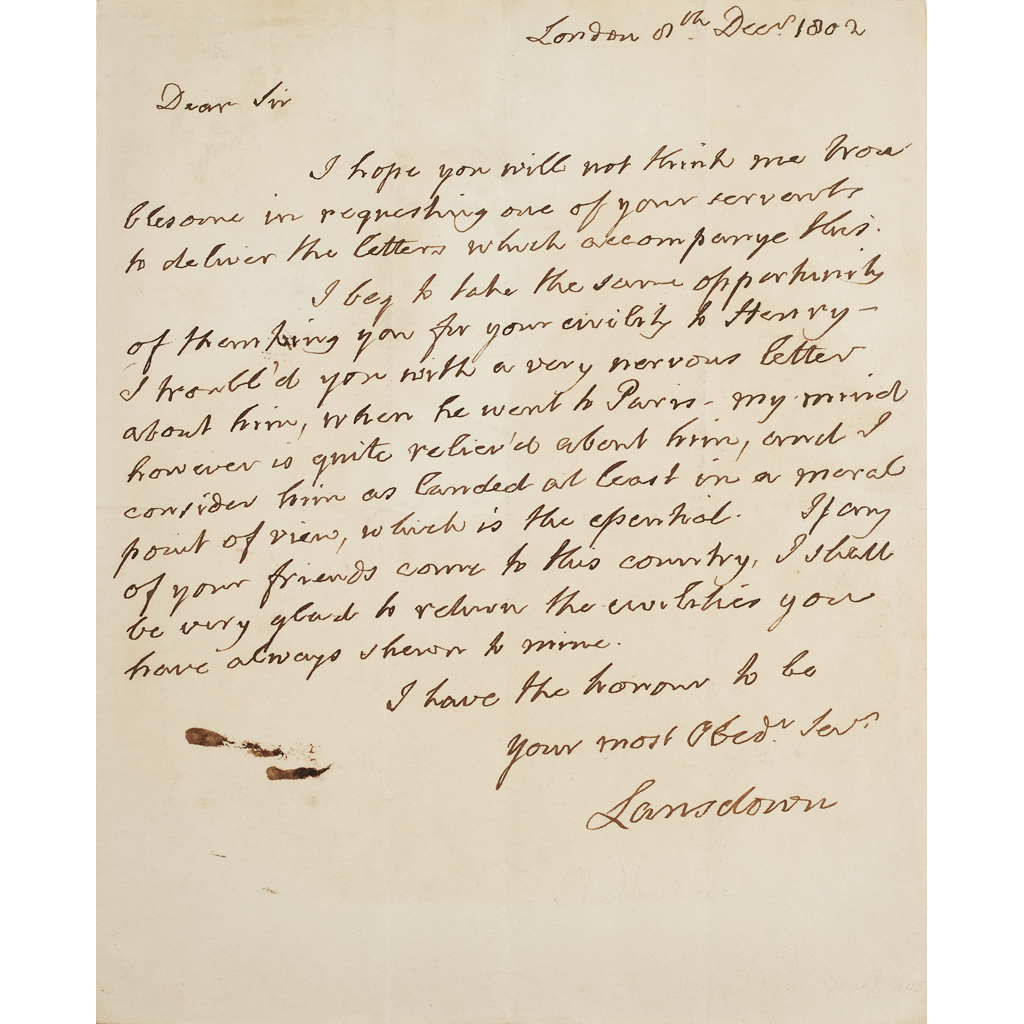 London 8th Decr. 1802
Dear Sir
I hope you will not think me trou
blesome in requesting one of your servants
to deliver the letters which accompanye this.
I beg to take the same opportunity
of thanking you for your civility to Henry -
I troubl'd you with a very nervous letter
about him, when he went to Paris - my mind
however is quite reliev'd about him, and I
consider him as landed at least in a moral
point of view, which is the essential. If any
of your friends come to this country, I shall
be very glad to return the civilities you
have always shewn to mine.
I have the honour to be
your most Obedt. Servt.
Lansdown